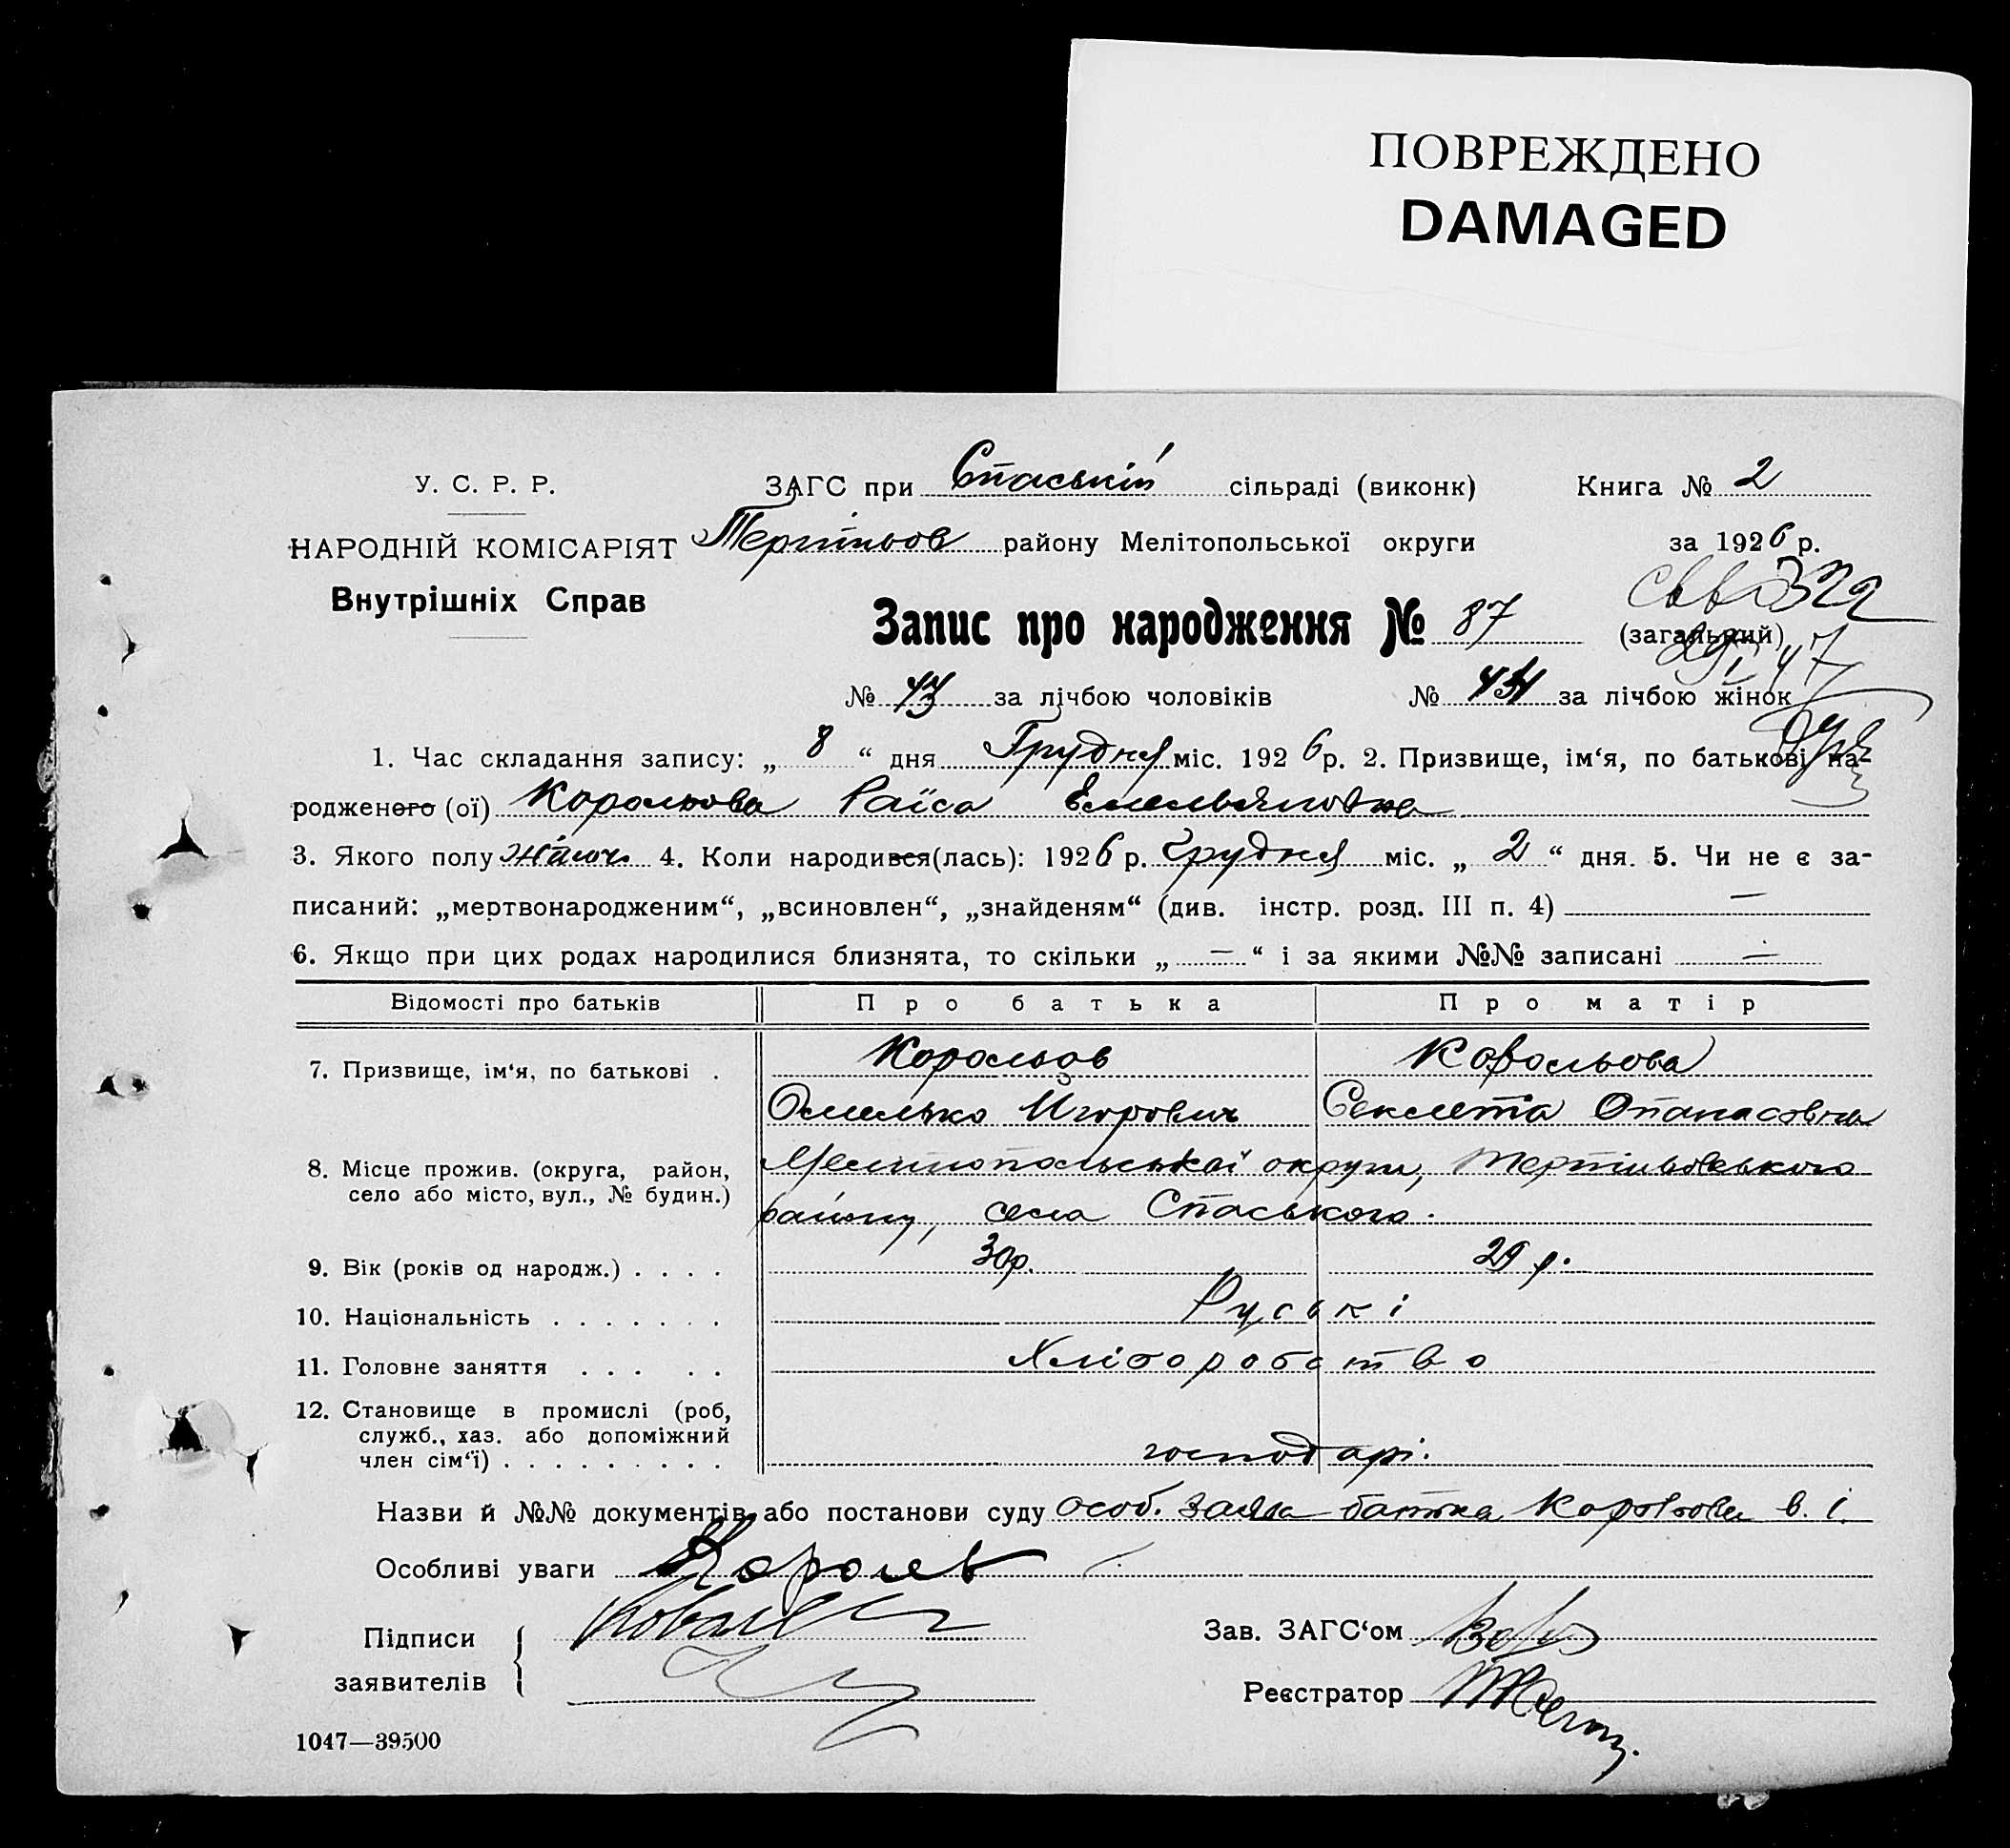 ПОВРЕЖДЕНО
DAMAGED
У. С. Р. Р.
НАРОДНІЙ КОМІСАРІЯТ
Внутрішніх Справ
ЗАГС при Спаській сільраді (виконк)
Книга № 2
району Мелітопольської округи
за 1926 р.
Запис про народження № 87
(загальний)
№ 43 за лічбою чоловіків № за лічбою жінок
1. Час складання запису: „ 8 “ дня Грудня міс. 1926 р. 2. Призвище, ім‘я, по батькові на-
родженого (ої) Корольова Раїса Емельяновна
3. Якого полу жіноч. 4. Коли народився(лась): 1926 р. Грудня міс. „ 2 “ дня. 5. Чи не є за-
писаний: „мертвонародженим“, „всиновлен“, „знайденям“ (див. інстр. розд. III п. 4) —
6. Якщо при цих родах народилися близнята, то скільки „ — “ і за якими №№ записані —
Відомості про батьків Про батька Про матір
7. Призвище, ім‘я, по батькові . Корольов Корольова
Омелько Опанасовна
8. Місце прожив. (округа, район,
село або місто, вул., № будин.)
Мелітопольської округи,
району, села Спаського.
9. Вік (років од народж.) . . . . 30р. 29 р.
10. Національність . . . . . . . Руські
11. Головне заняття . . . . . Хліборобство
12. Становище в промислі (роб,
служб., хаз. або допоміжний
член сім‘ї) . . . . . . . . . господарі.
Назви й №№ документів або постанови суду особ. заява батька
Особливі уваги
Підписи
заявителів
Зав. ЗАГС‘ом
Реєстратор
1047—39500